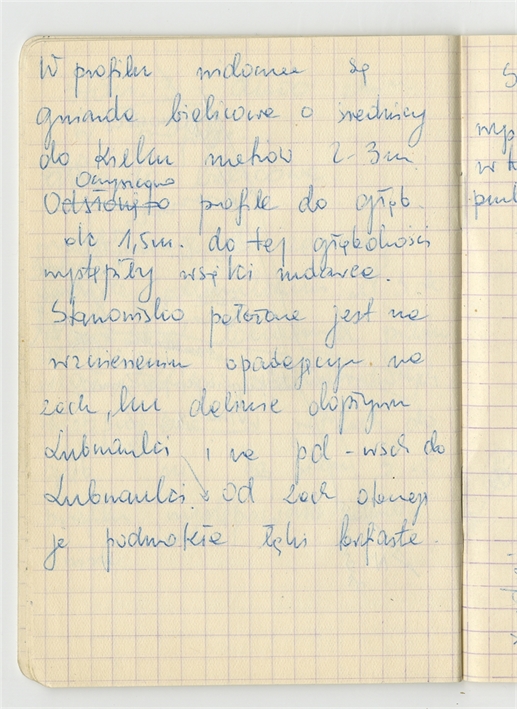 W profilu widoczne są
gniazda bielicowe o średnicy
do kilku metrów 2-3m
Oczyszczono
Odsłonięto profile do głęb.
ok 1,5m. do tej głębokości
wystąpiły wsięki
Stanowisko położone jest na
wzniesieniu opadającym na
zach, ku dolinie dopływu
Lubnianki i na pd-wsch do
Lubnianki. Od zach otaczają
je podmokłe łąki torfiaste.
S
wyp
w
punk